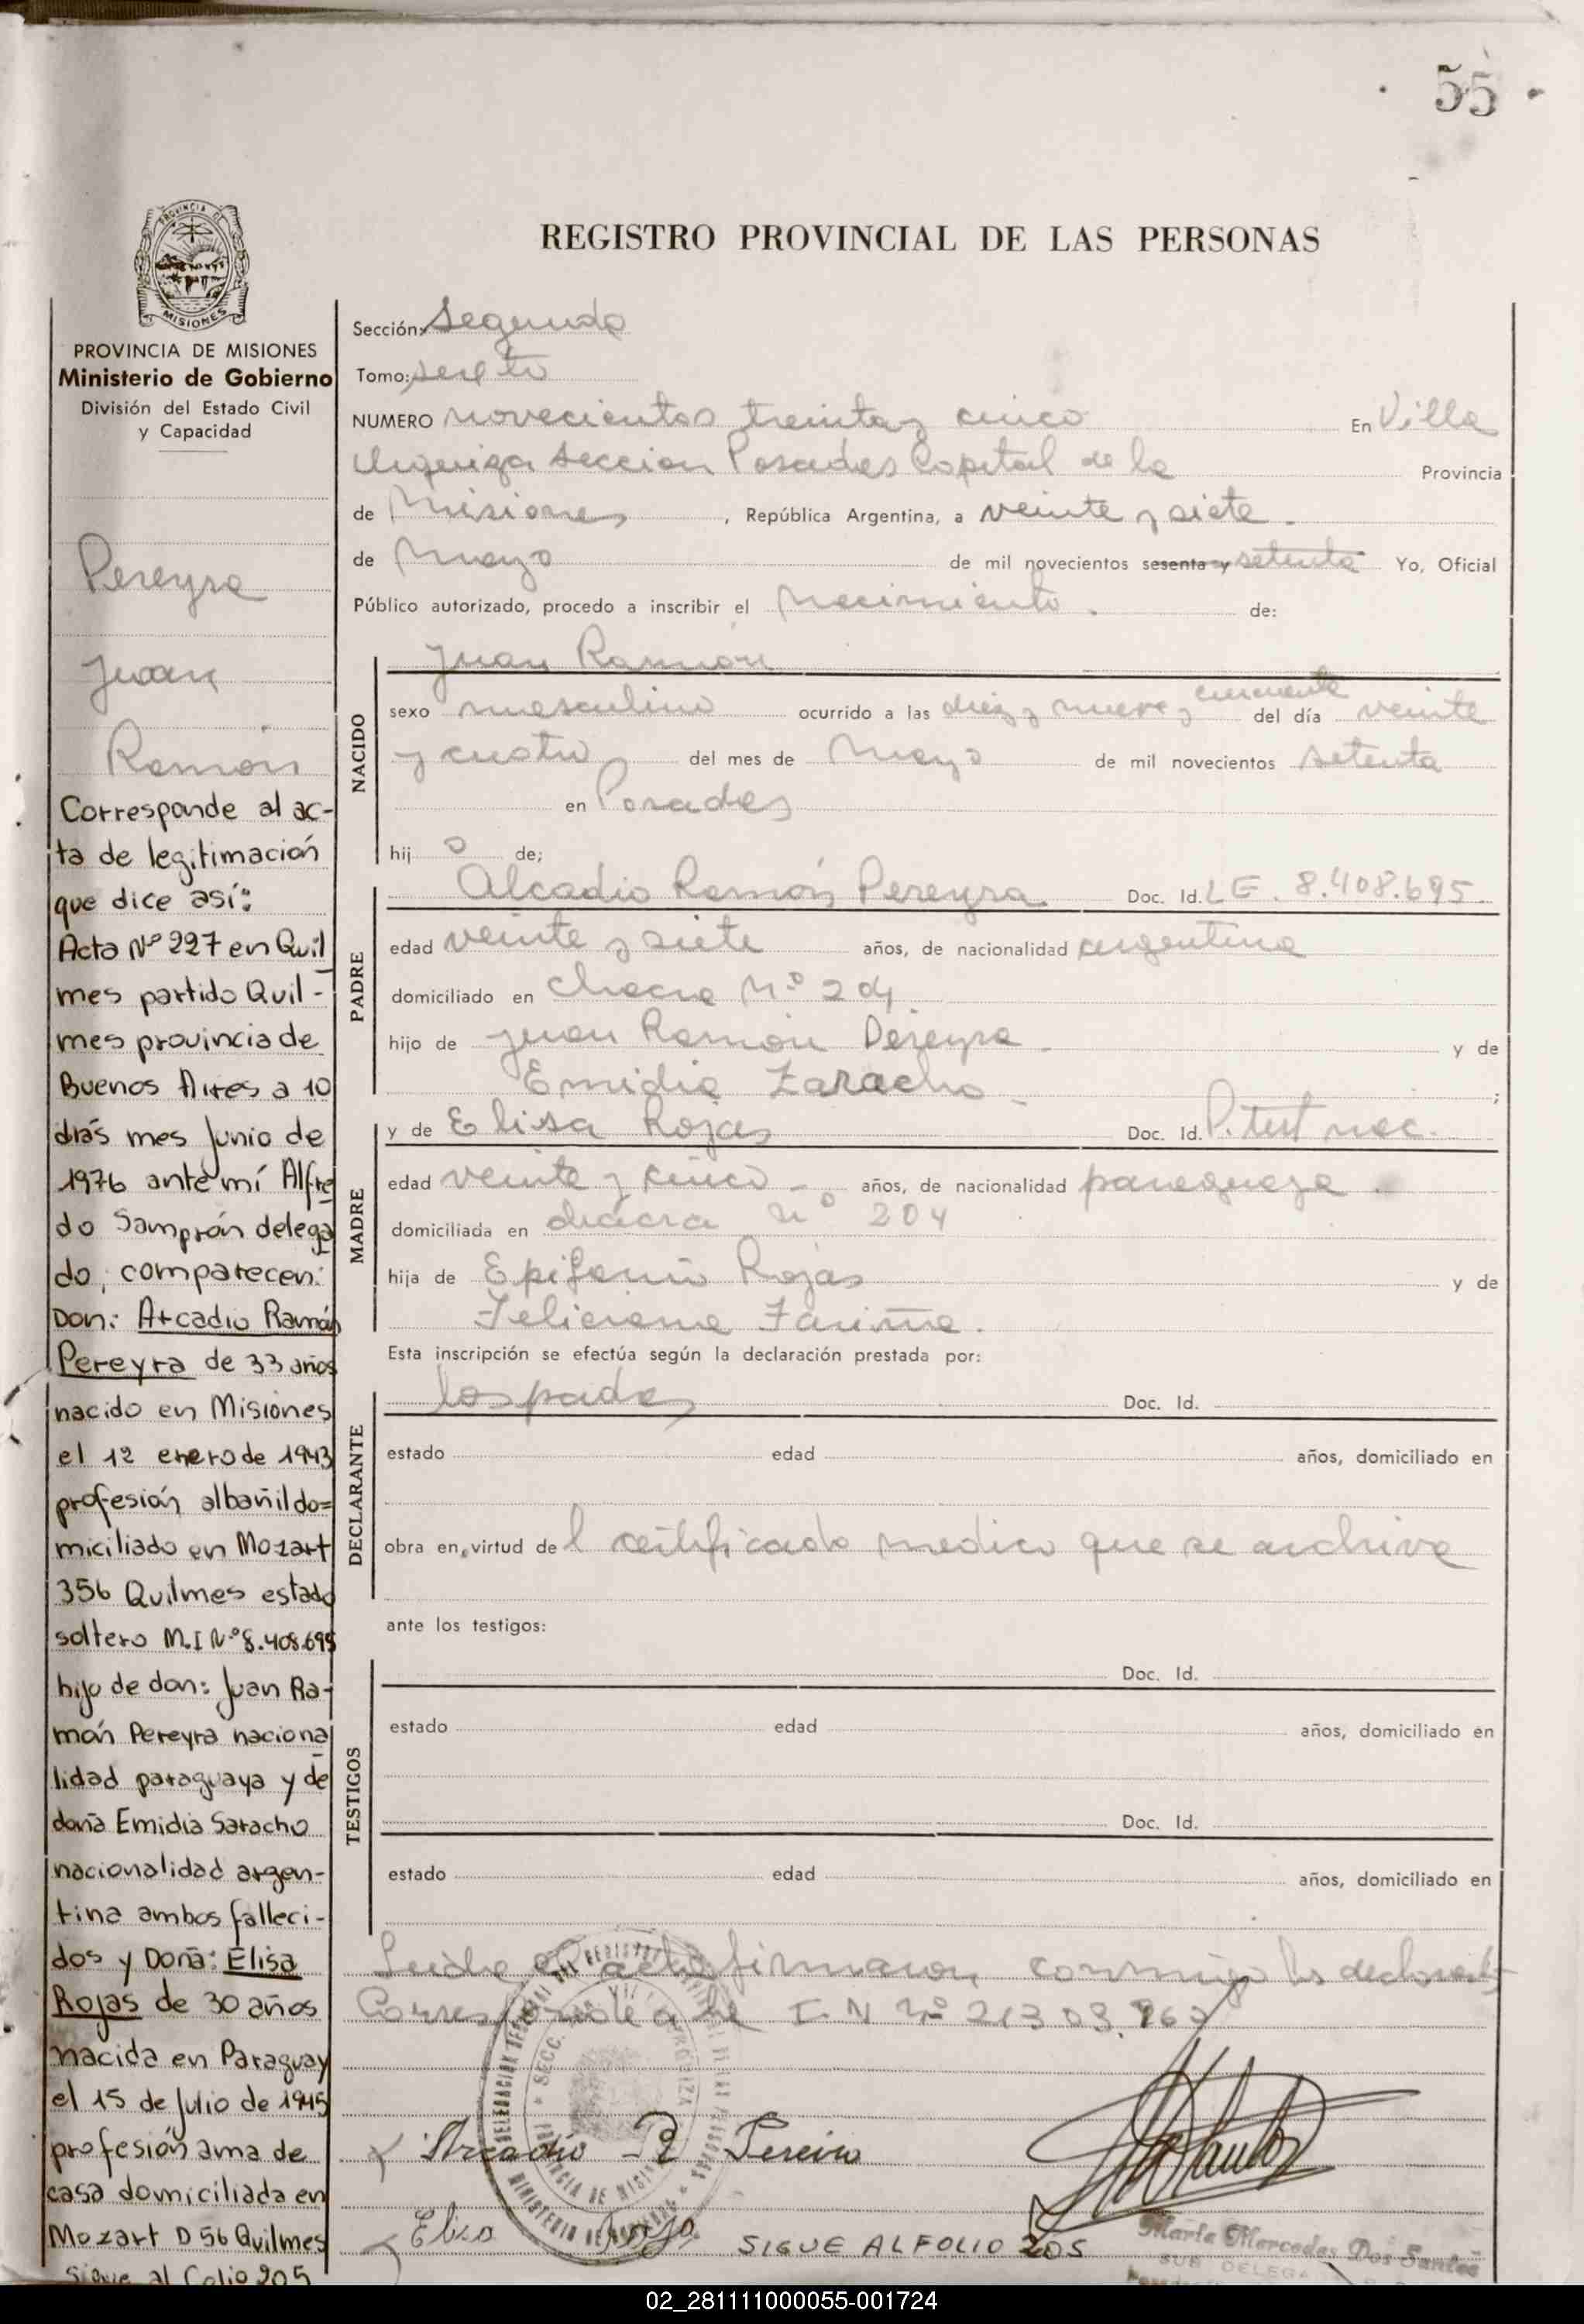 55
REGISTRO PROVINCIAL DE LAS PERSONAS
PROVINCIA DE
MISIONES
PROVINCIA DE MISIONES
Ministerio de Gobierno
División del Estado Civil
y Capacidad
Pereyra
Juan
Ramón
Corresponde al ac-
ta de legitimación
que dice así:
Acta Nº 227 en Quil
mes partido Quil-
mes provincia de
Buenos Aires a 10
dias mes Junio de
1976 ante mí Alfre
do Samprón delega
do, comparecen:
Don: Arcadio Ramón
Pereyra de 33 años
nacido en Misiones
el 12 enero de 1943
profesión albañil do=
miciliado en Mozart
356 Quilmes estado
soltero M.I Nº 8.408.695
hijo de don: Juan Ra-
món Pereyra naciona
lidad paraguaya y de
doña Emidia Saracho
nacionalidad argen-
tina ambos falleci-
dos y Doña: Elisa
Rojas de 30 años
nacida en Paraguay
el 15 de Julio de 1945
profesión ama de
casa domiciliada en
Mozart D 56 Quilmes
Sigue al Folio 205
Sección: Segunda
Tomo: sexto
NUMERO novecientos treinta y cinco En Villa
Urquiza Seccion Posadas Capital de la Provincia
de Misiones , República Argentina, a veinte y siete.
de Mayo de mil novecientos sesenta y setenta Yo, Oficial
Público autorizado, procedo a inscribir el Nacimiento. de:
NACIDO
Juan Ramón
sexo masculino ocurrido a las diez y nueve y cincuenta del día veinte
y cuatro del mes de Mayo de mil novecientos setenta
en Posadas
hij o de;
PADRE
Alcadio Ramón Pereyra Doc. Id. LE. 8.408.695.
edad veinte y siete años, de nacionalidad argentina
domiciliado en Chacra Nº 204
hijo de Juan Ramón Pereyra y de
Emidia Zaracho ;
MADRE
y de Elisa Rojas Doc. Id. P. test nac.
edad veinte y cinco años, de nacionalidad paraguaya
domiciliada en chácra nº 204
hija de Epifanio Rojas y de
Feliciana Fariña.
Esta inscripción se efectúa según la declaración prestada por:
DECLARANTE
los padres Doc. Id.
estado edad años, domiciliado en
obra en virtud de l certificado medico que se archiva
ante los testigos:
TESTIGOS
Doc. Id.
estado edad años, domiciliado en
Doc. Id.
estado edad años, domiciliado en
Leida el acta firmaron conmigo los declarantes
Corresponde a la I-N Nº 21303.962
Arcadio R Pereira
Elisa Rojas
SIGUE AL FOLIO 205
Marta Mercedes Dos Santos
SUB DELEGA
02_281111000055-001724